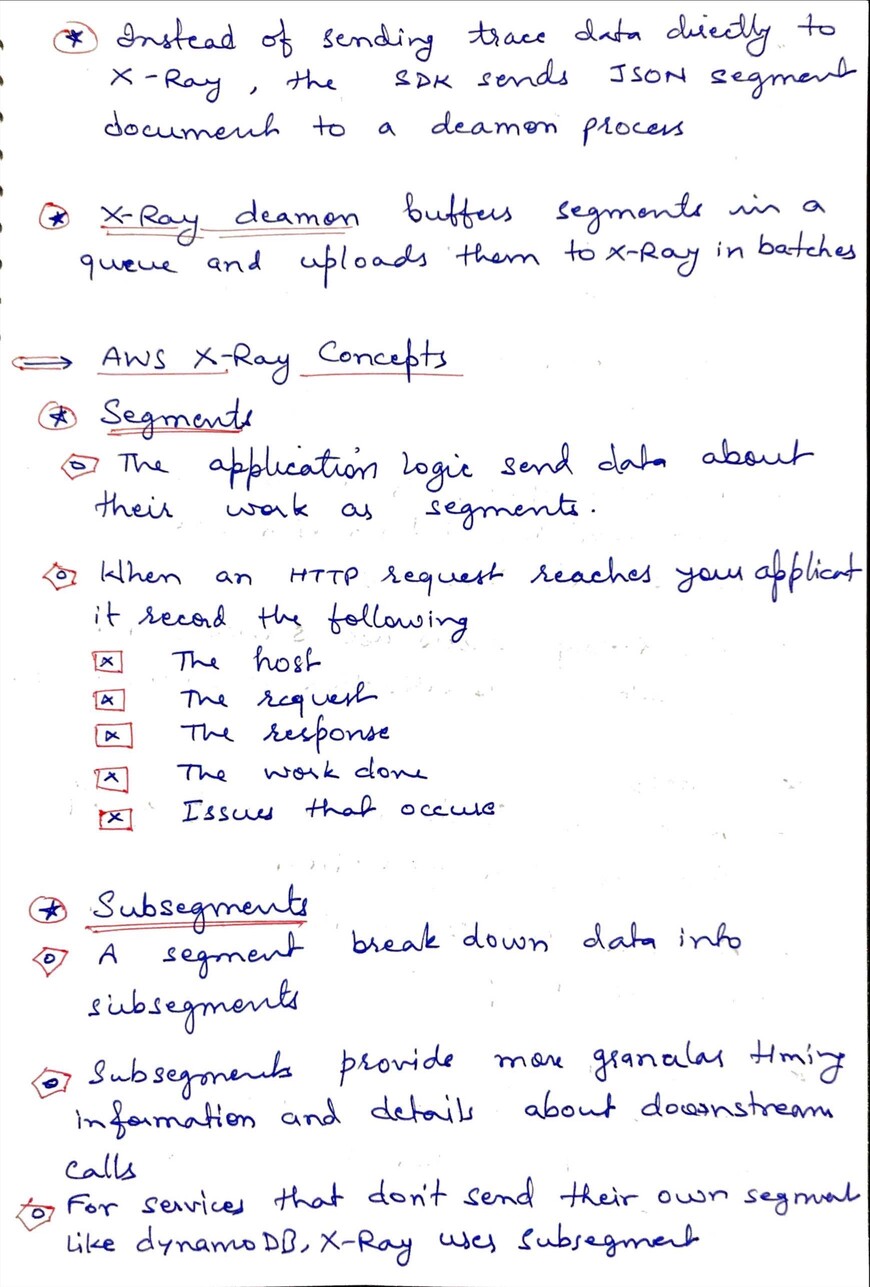 Instead of sending trace data directly to
X-Ray, the SDK sends JSON segment
document to a deamon process
X-Ray deamon buffers segments in a
queue and uploads them to X-Ray in batches
⇒ AWS X-Ray Concepts
Segments
The application logic send data about
their work as segments.
When an HTTP request reaches your applicat
it record the following
The host
The request
The response
The work done
Issues that occurs
Subsegments
A segment break down data into
subsegments
Subsegments provide more granalas timing
information and details about downstream
calls
For services that don't send their own segment
like dynamoDB, X-Ray uses subsegment